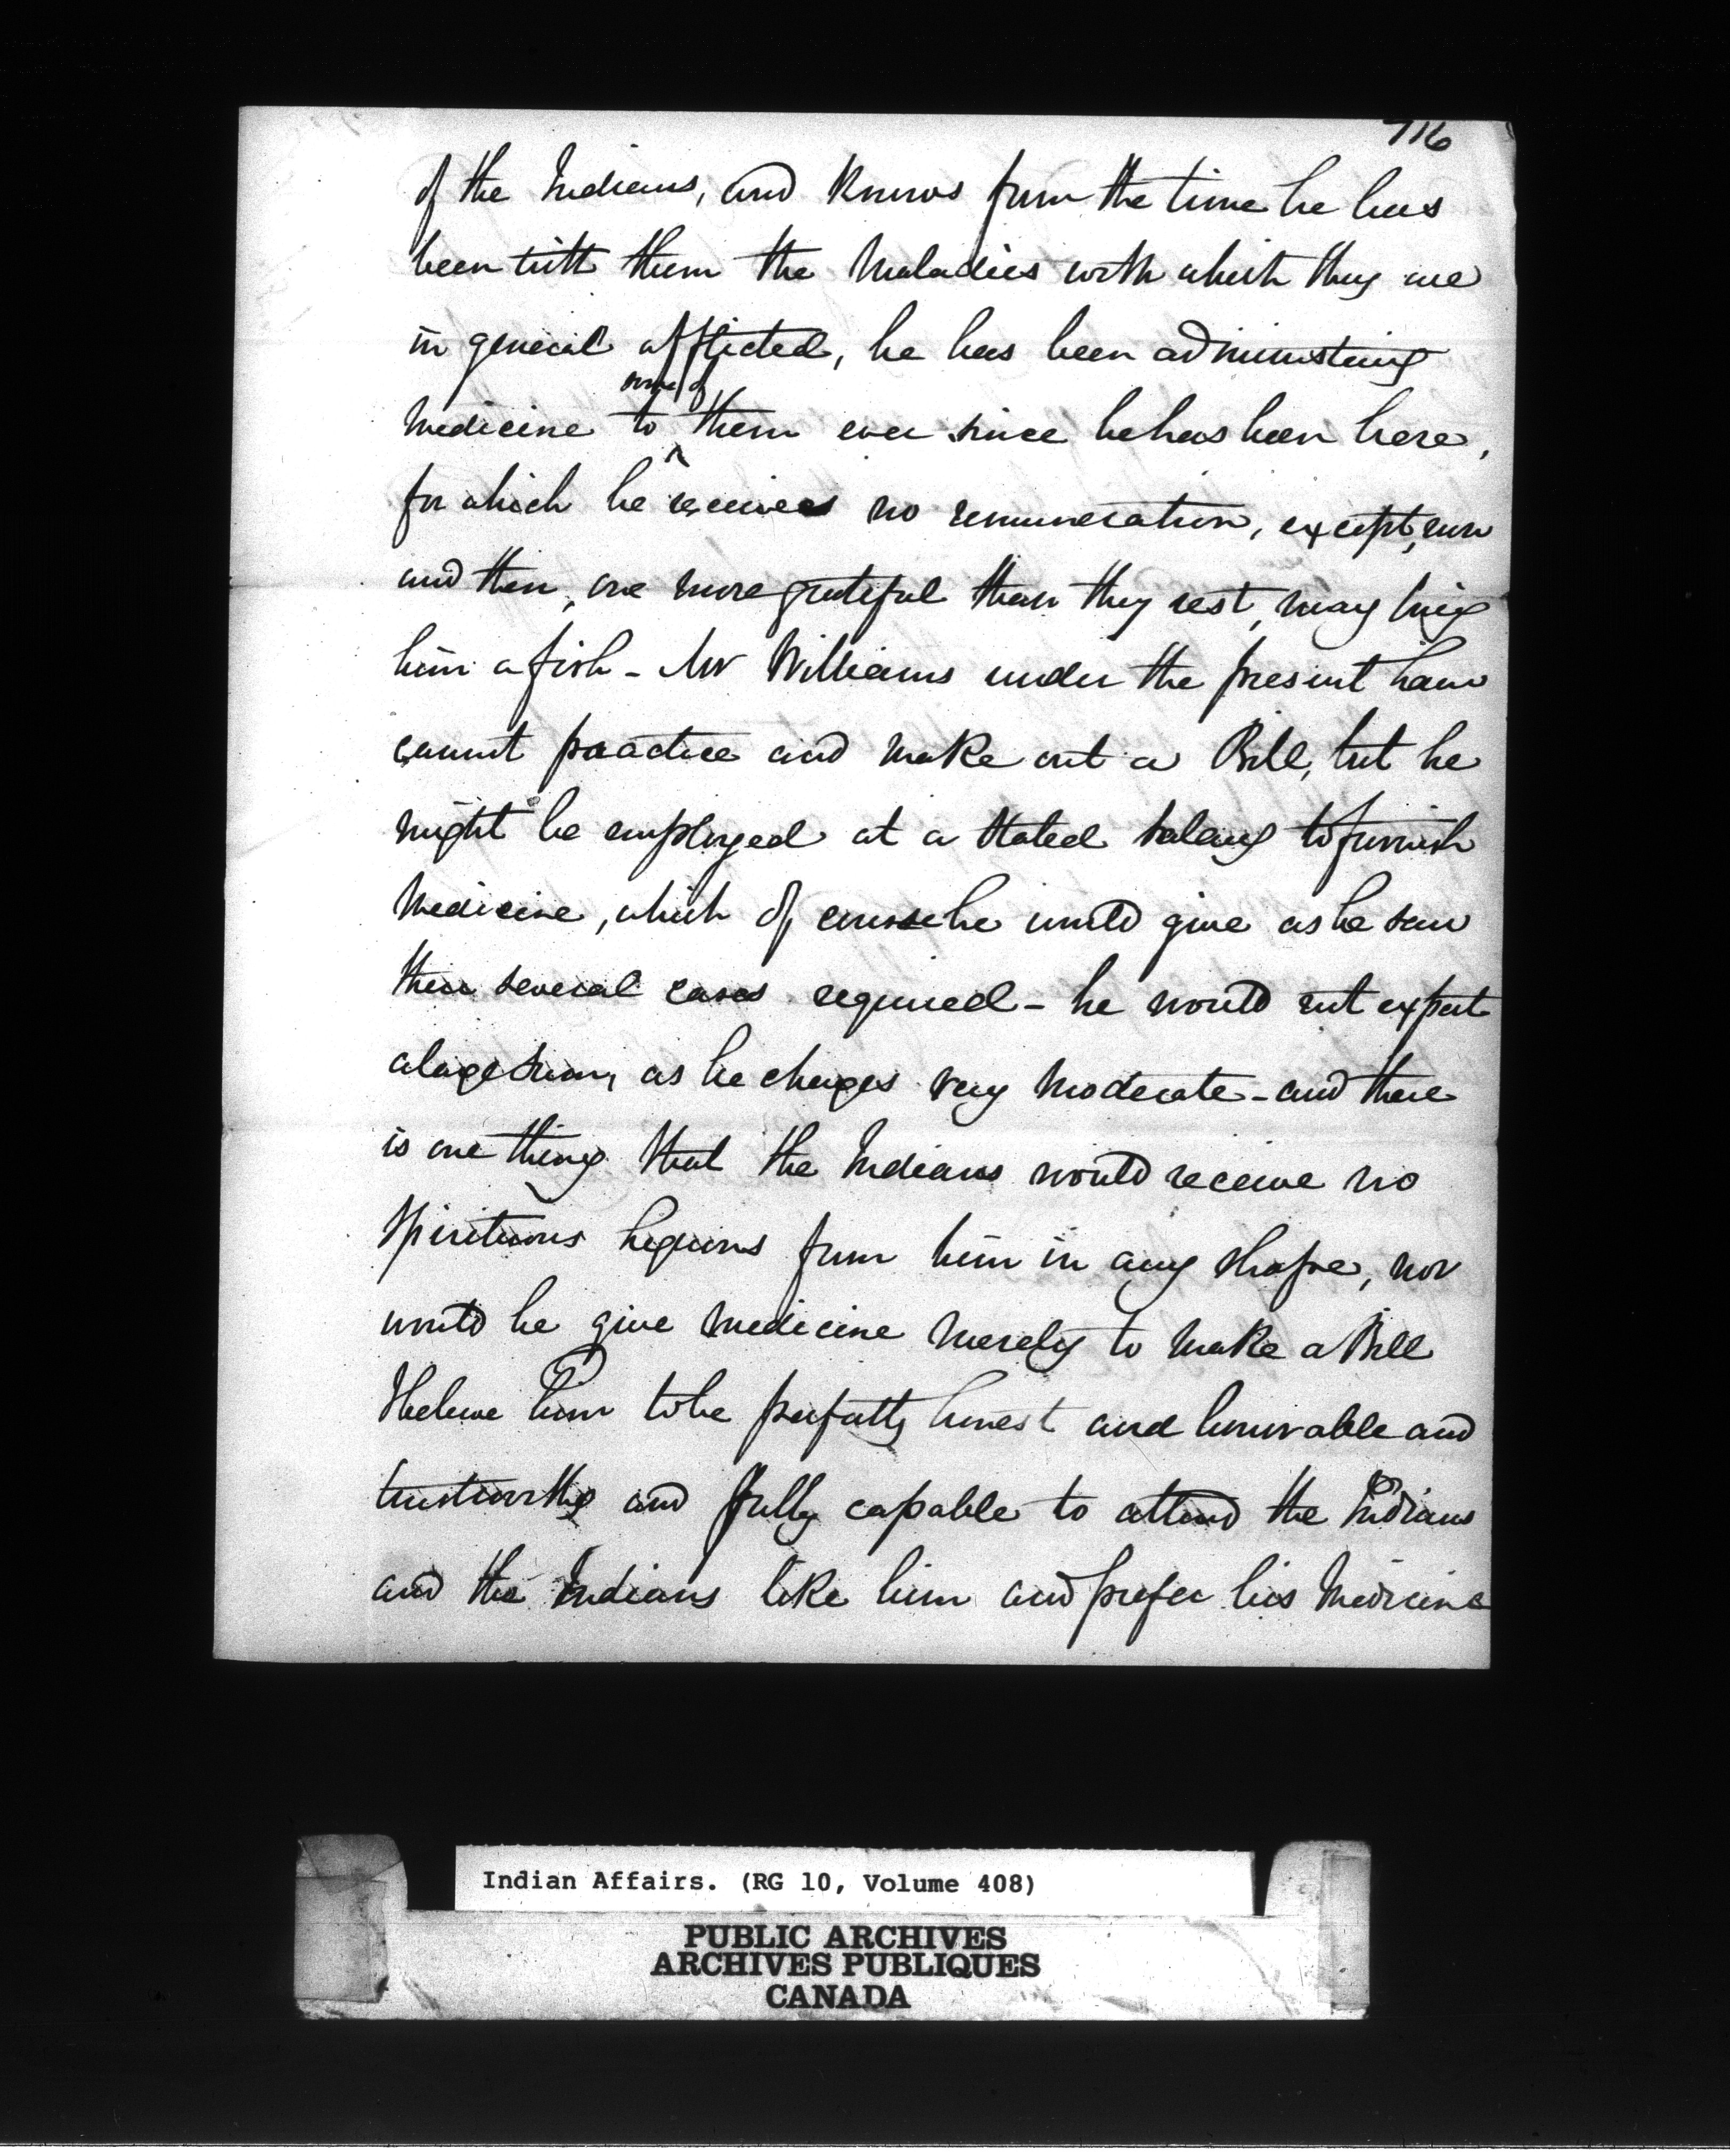 716
of the Indians, and knows from the time he has
been with them the maladies with which they are
in general afflicted, he has been administering
some of
medicine to ^ them ever since he has been here,
for which he receives no remuneration, except, now
and then, one more grateful than they rest, may bring
him a fish - Mr Williams under the present Law
cannot practice and make out a Bill, but he
might be employed at a stated salary to furnish
medicine, which of course he would give as he saw
their several cases required - he would not expect
a large sum, as he charges very moderate - and there
is one thing that the Indians would receive no
spirituous liquors from him in any shape, nor
would he give medicine merely to make a Bill
I believe him to be perfectly honest and honorable and
trustworthy and fully capable to attend the Indians
and the Indians like him and prefer his medicine
Indian Affairs. (RG 10, Volume 408)
PUBLIC ARCHIVES
ARCHIVES PUBLIQUES
CANADA